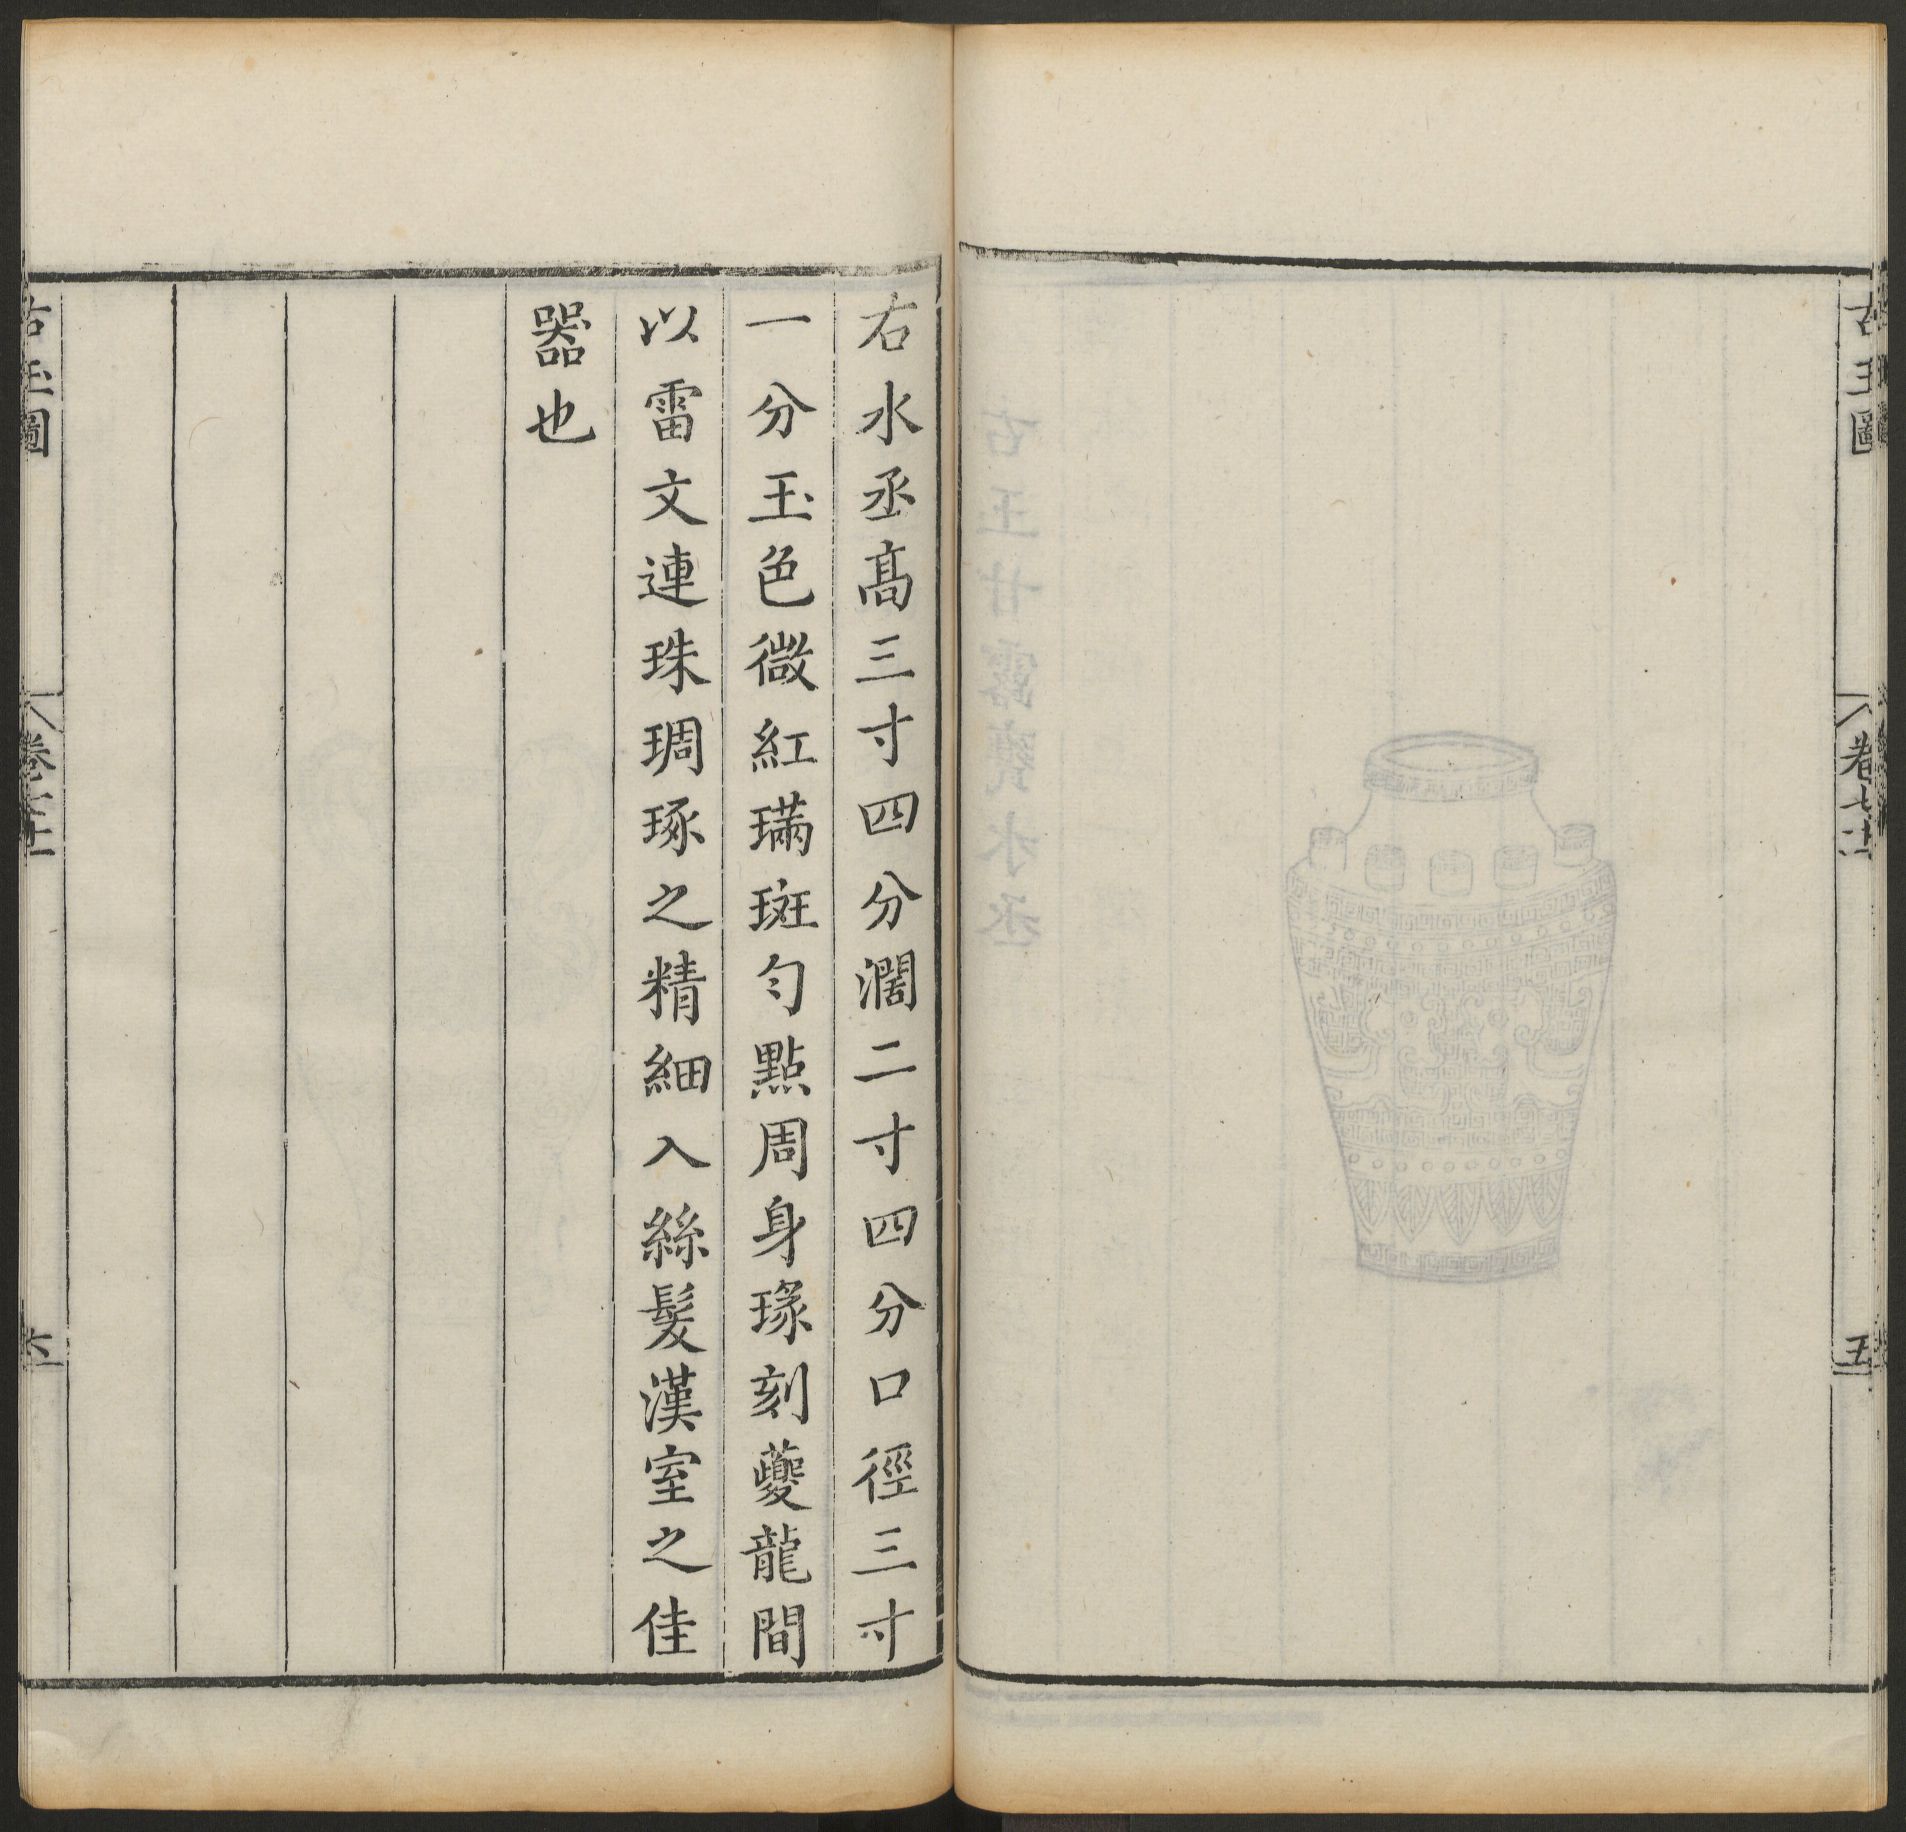 古玉圖
五
右水丞高三寸四分濶二寸四分口徑三寸
一分玉色微紅璊斑勻點周身瑑刻夔龍間
以雷文連珠琱琢之精細入絲髮漢室之佳
器也
古玉圖
六